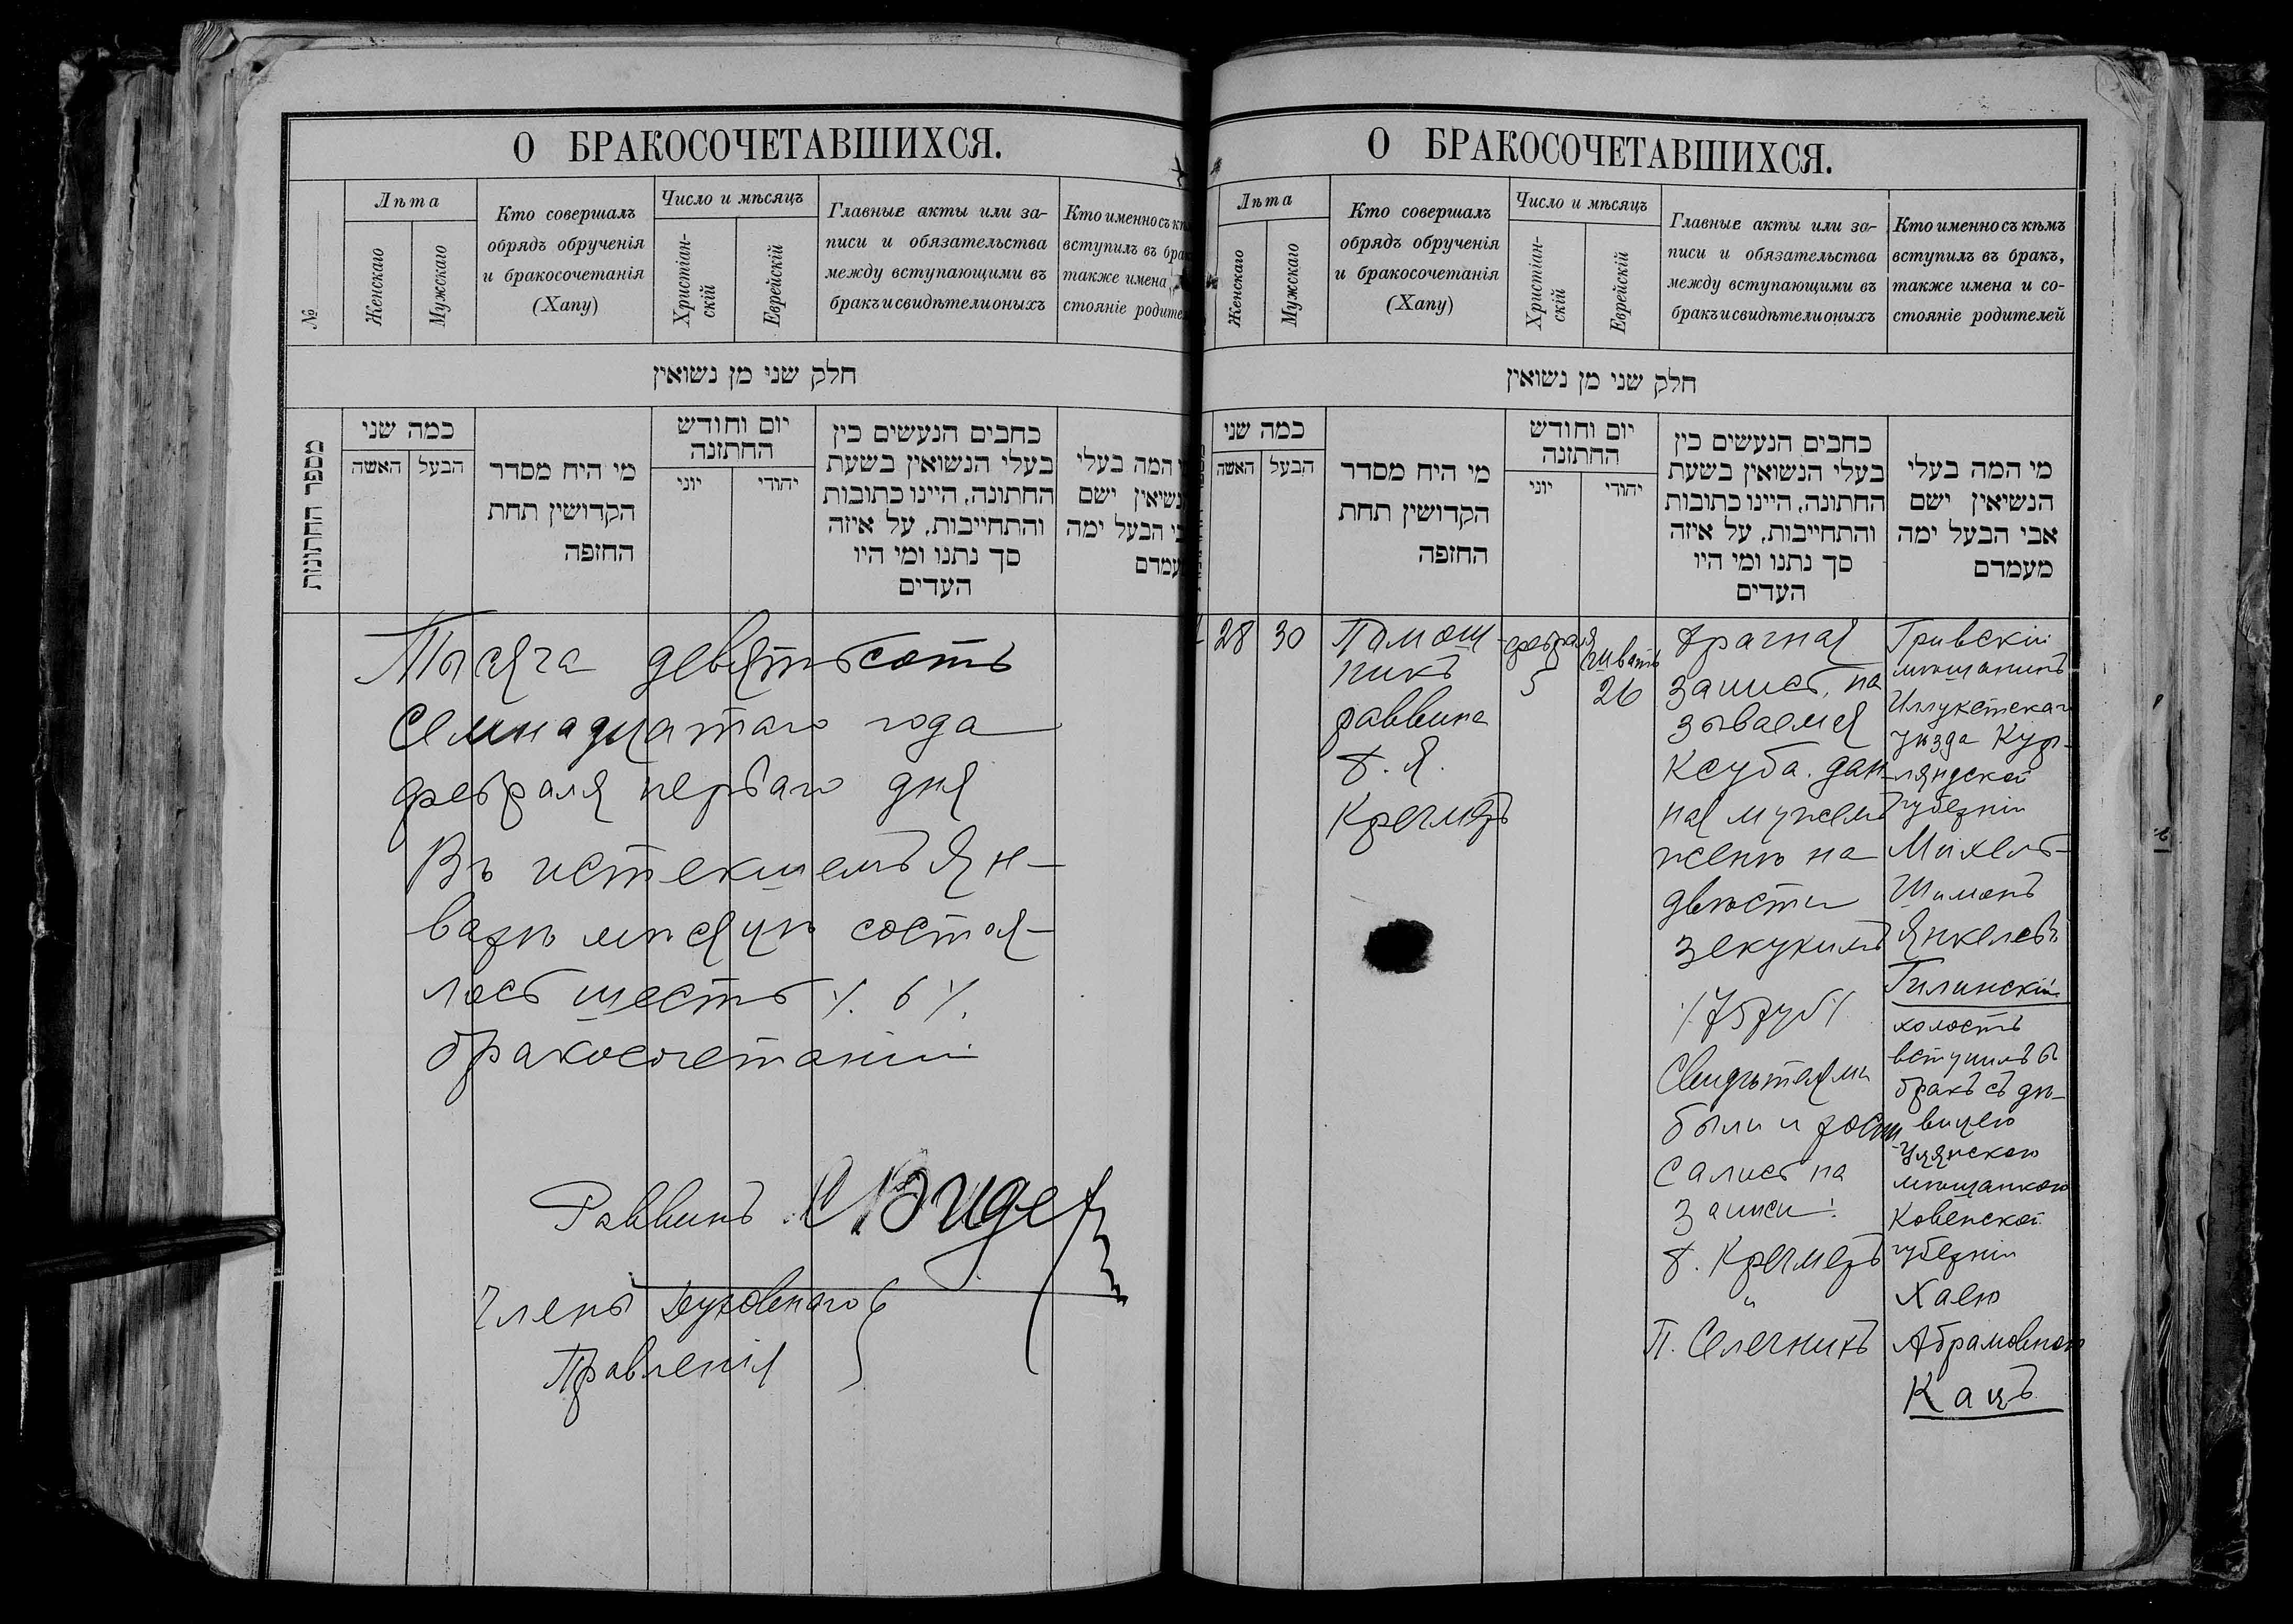 О БРАКОСОЧЕТАВШИХСЯ.
№
Лѣта
Женскаго
Мужскаго
Кто совершалъ
обрядъ обрученія
и бракосочетанія
(Хапу)
Число и мѣсяцъ
Христіан-
скій
Еврейскій
Главные акты или за-
писи и обязательства
между вступающими въ
бракъ и свидѣтели оныхъ
Кто именно съ
вступилъ въ
также имена
стояніе
חלק שני מן נשואין
מספר החתונות
כמה שני
האשה
הבעל
מי היח מסדר
הקדושין תחת
החופה
יום וחודש
החתונה
יוני
יהודי
כחבים הנעשים כין
בעלי הנשואין בשעת
החתונה, היינו כתובות
והתחייבות, על איזה
סך נתנו ומי היו
העדים
המה בעלי
ישם
הבעל ימה
Тысяча девятьсотъ
Семнадцатаго года
февраля перваго дня
Въ истекшемъ Ян-
варѣ мѣсяцѣ состоя-
лось шесть /. 6 /.
бракосочетаній
Раввинъ
Члены Духовнаго
Правленія
О БРАКОСОЧЕТАВШИХСЯ.
Лѣта
Женскаго
Мужскаго
Кто совершалъ
обрядъ обрученія
и бракосочетанія
(Хапу)
Число и мѣсяцъ
Христіан-
скій
Еврейскій
Главные акты или за-
писи и обязательства
между вступающими въ
бракъ и свидѣтели оныхъ
Кто именно съ кѣмъ
вступилъ въ бракъ,
также имена и со-
стояніе родителей
חלק שני מן נשואין
כמה שני
האשה
הבעל
מי היח מסדר
הקדושין תחת
החופה
יום וחודש
החתונה
יוני
יהודי
כחבים הנעשים כין
בעלי הנשואין בשעת
החתונה, היינו כתובות
והתחייבות, על איזה
סך נתנו ומי היו
העדים
מי המה בעלי
הנשיאין ישם
אבי הבעל ימה
מעמדם
28
30
Помощ-
никъ
раввина
Кремеръ
февраля
5
Шватъ
26
Брачная
запись, на
зываемая
Ксуба. дан-
ная мужемъ
женѣ на
двѣсти
зекукимъ
/.75 руб/.
Свидѣтелями
были и распи
сались на
записи:
Кремеръ
и
П. Селечникъ
Гривскій
мѣщанинъ
Иллукстскаго
уѣзда Кур-
ляндской
губерніи
Михель-
Шимонъ
Янкелевъ
Гилинскій
холостъ
вступилъ въ
бракъ съ дѣ-
вицею
Уцянскою
мѣщанкою
Ковенской
губерніи
Хаею
Абрамовною
Кацъ